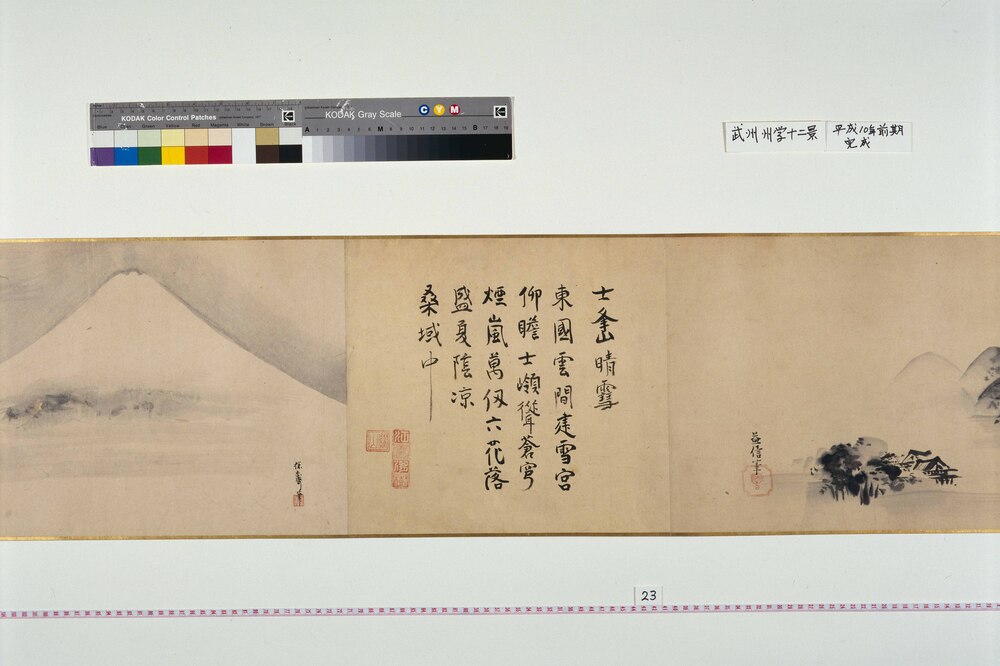 KODAK Color Control Patches
Blue Cyan Green Yellow Red Magenta White Brown Black
KODAK Gray Scale
C Y M
Kodak
A 1 2 3 4 5 6 M 8 9 10 11 12 13 14 15 B 17 18 19
武州州学十二景
平成10年前期
完成
士峯晴雪
東國雲間建雪宮
仰瞻士嶺聳蒼穹
煙嵐萬仭六花落
盛夏陰凉
桑域中
益信筆
23